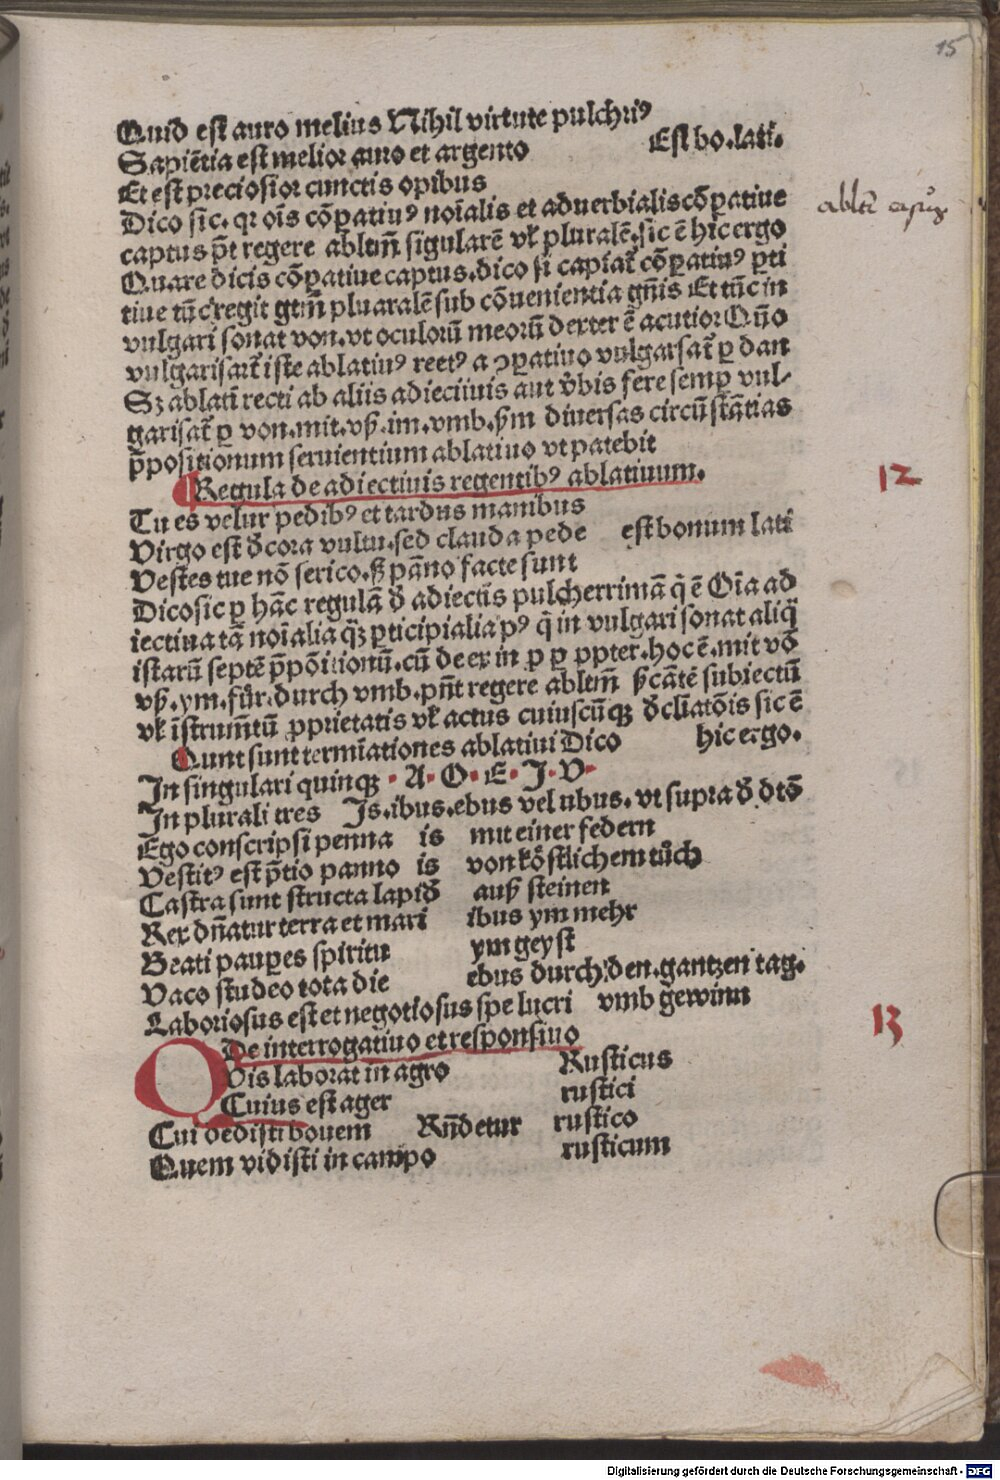 15
Quid est auro melius Nihil virtute pulchriꝰ
Sapiẽtia est melior auro et argento Est bo.lati.
Et est preciosior cunctis opibus
Dico sic. qꝛ oĩs cõꝑatiuꝰ noĩalis et aduerbialis cõꝑatiue
captus põt regere abltm̃ sigularẽ vł pluralẽ. sic ẽ hic ergo
Quare dicis cõꝑatiue captus. dico si capiat᷑ cõꝑatiuꝰ ꝑti
tiue tũc regit gtm̃ pluaralẽ sub cõuenientia gñis Et tũc in
vulgari sonat von. vt oculorũ meorũ dexter ẽ acutior Qño
vulgarisart᷑ iste ablatiuꝰ rectꝰ a ꝯꝑatiuo vulgarsat᷑ ꝑ dan
Sꝫ ablati recti ab aliis adiectiuis aut v̓bis fere semꝑ vul⸗
garisat᷑ ꝑ von. mit. vß. im. vmb. v̓m diuersas circũstãtias
p̃positionum seruientium ablatiuo vt patebit
Regula de adiectiuis regentibꝰ ablatiuum.
12
Tu es velur pedibꝰ et tardus manibus
Virgo est d̓cora vultu. sed clauda pede est bonum lati
Vestes tue nõ serico. sʒ pãno facte sunt
Dico sic ꝑ hãc regulã d̓ adiectis pulcherrimã q̃ ẽ Oĩa ad
iectiua tã noĩalia q̃ʒ ꝑticipialia pꝰ q̃ in vulgari sonat aliq̃
istarũ septẽ p̃põitionũ. cũ de ex in p ꝑ ꝓ ꝓpter. hoc ẽ. mit võ
vß. ym. für. durch vmb. pñt regere abltm̃ ßcãtẽ subiectũ
vł ĩstrumẽtũ ꝓprietatis vł actus cuiuscũqꝫ d̓cliatõis sic ẽ
Quot sunt termĩationes ablatiui Dico hic ergo.
In singulari quinqꝫ · A · O · E · I · V ·
In plurali tres Is. ibus. ebus vel ubus. vt supra d̓ dtõ
Ego conscripsi penna is mit einer federn
Vestitꝰ est p̃tio panno is von köstlichem tůch
Castra sunt structa lapid̓ auß steinen
Rex dñatur terra et mari ibus ym mehr
Beati pauꝑes spiritu ym geyst
Vaco studeo tota die ebus durch den. gantzen tag.
Laboriosus est et negotiosus spe lucri vmb gewinn
De interrogatiuo et responsiuo
13
Quis laborat in agro Rusticus
Cuius est ager rustici
Cui dedisti bouem Rñdetur rustico
Quem vidisti in campo rusticum
Digitalisierung gefördert durch die Deutsche Forschungsgemeinschaft - DFG